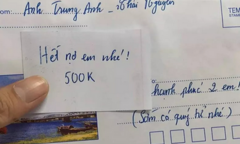 Anh Trung Anh - Khải Nguyên
TEM
Hết nợ em nhé!
500K
hạnh phúc 2 em!
(Sớm có quý tử nhé)